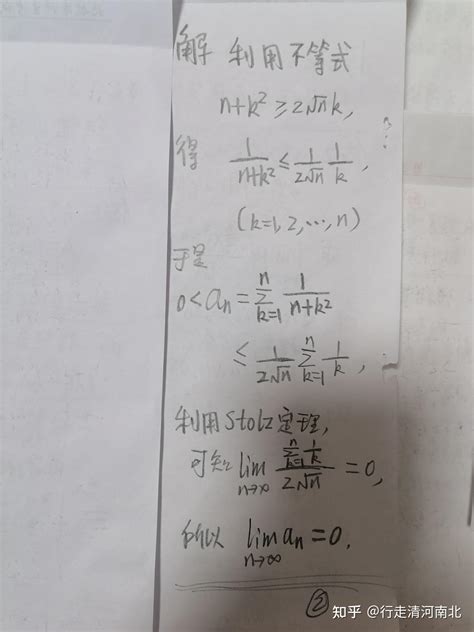 解 利用不等式
n+k² ≥ 2√n k,
得 1/(n+k²) ≤ 1/(2√n) 1/k,
(k=1,2,…,n)
于是
0<aₙ = ∑ₖ₌₁ⁿ 1/(n+k²)
≤ 1/(2√n) ∑ₖ₌₁ⁿ 1/k,
利用Stolz定理,
可知 lim_{n→∞} (∑ₖ₌₁ⁿ 1/k)/(2√n) = 0,
所以 lim_{n→∞} aₙ = 0.
②
知乎 @行走清河南北